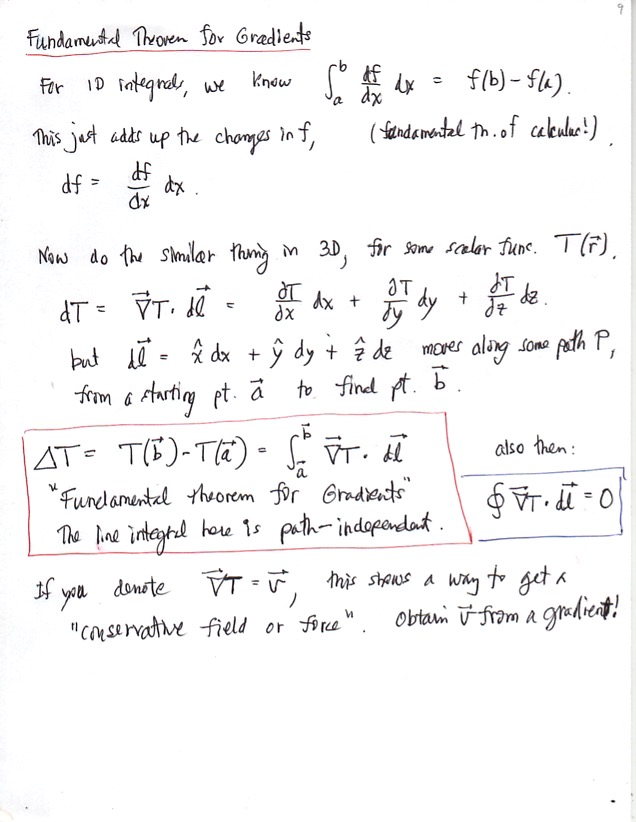 9
Fundamental Theorem for Gradients
For 1D integrals, we know ∫_a^b df/dx dx = f(b) - f(a).
This just adds up the changes in f, (fundamental th. of calculus!)
df = df/dx dx.
Now do the similar thing in 3D, for some scalar func. T(r⃗).
dT = ∇⃗T · dl⃗ = ∂T/∂x dx + ∂T/∂y dy + ∂T/∂z dz.
but dl⃗ = x̂ dx + ŷ dy + ẑ dz moves along some path P,
from a starting pt. a⃗ to final pt. b⃗.
ΔT = T(b⃗) - T(a⃗) = ∫_a⃗^b⃗ ∇⃗T · dl⃗
"Fundamental theorem for Gradients"
The line integral here is path-independent.
also then:
∮ ∇⃗T · dl⃗ = 0
If you denote ∇⃗T = v⃗, this shows a way to get a
"conservative field or force". Obtain v⃗ from a gradient!